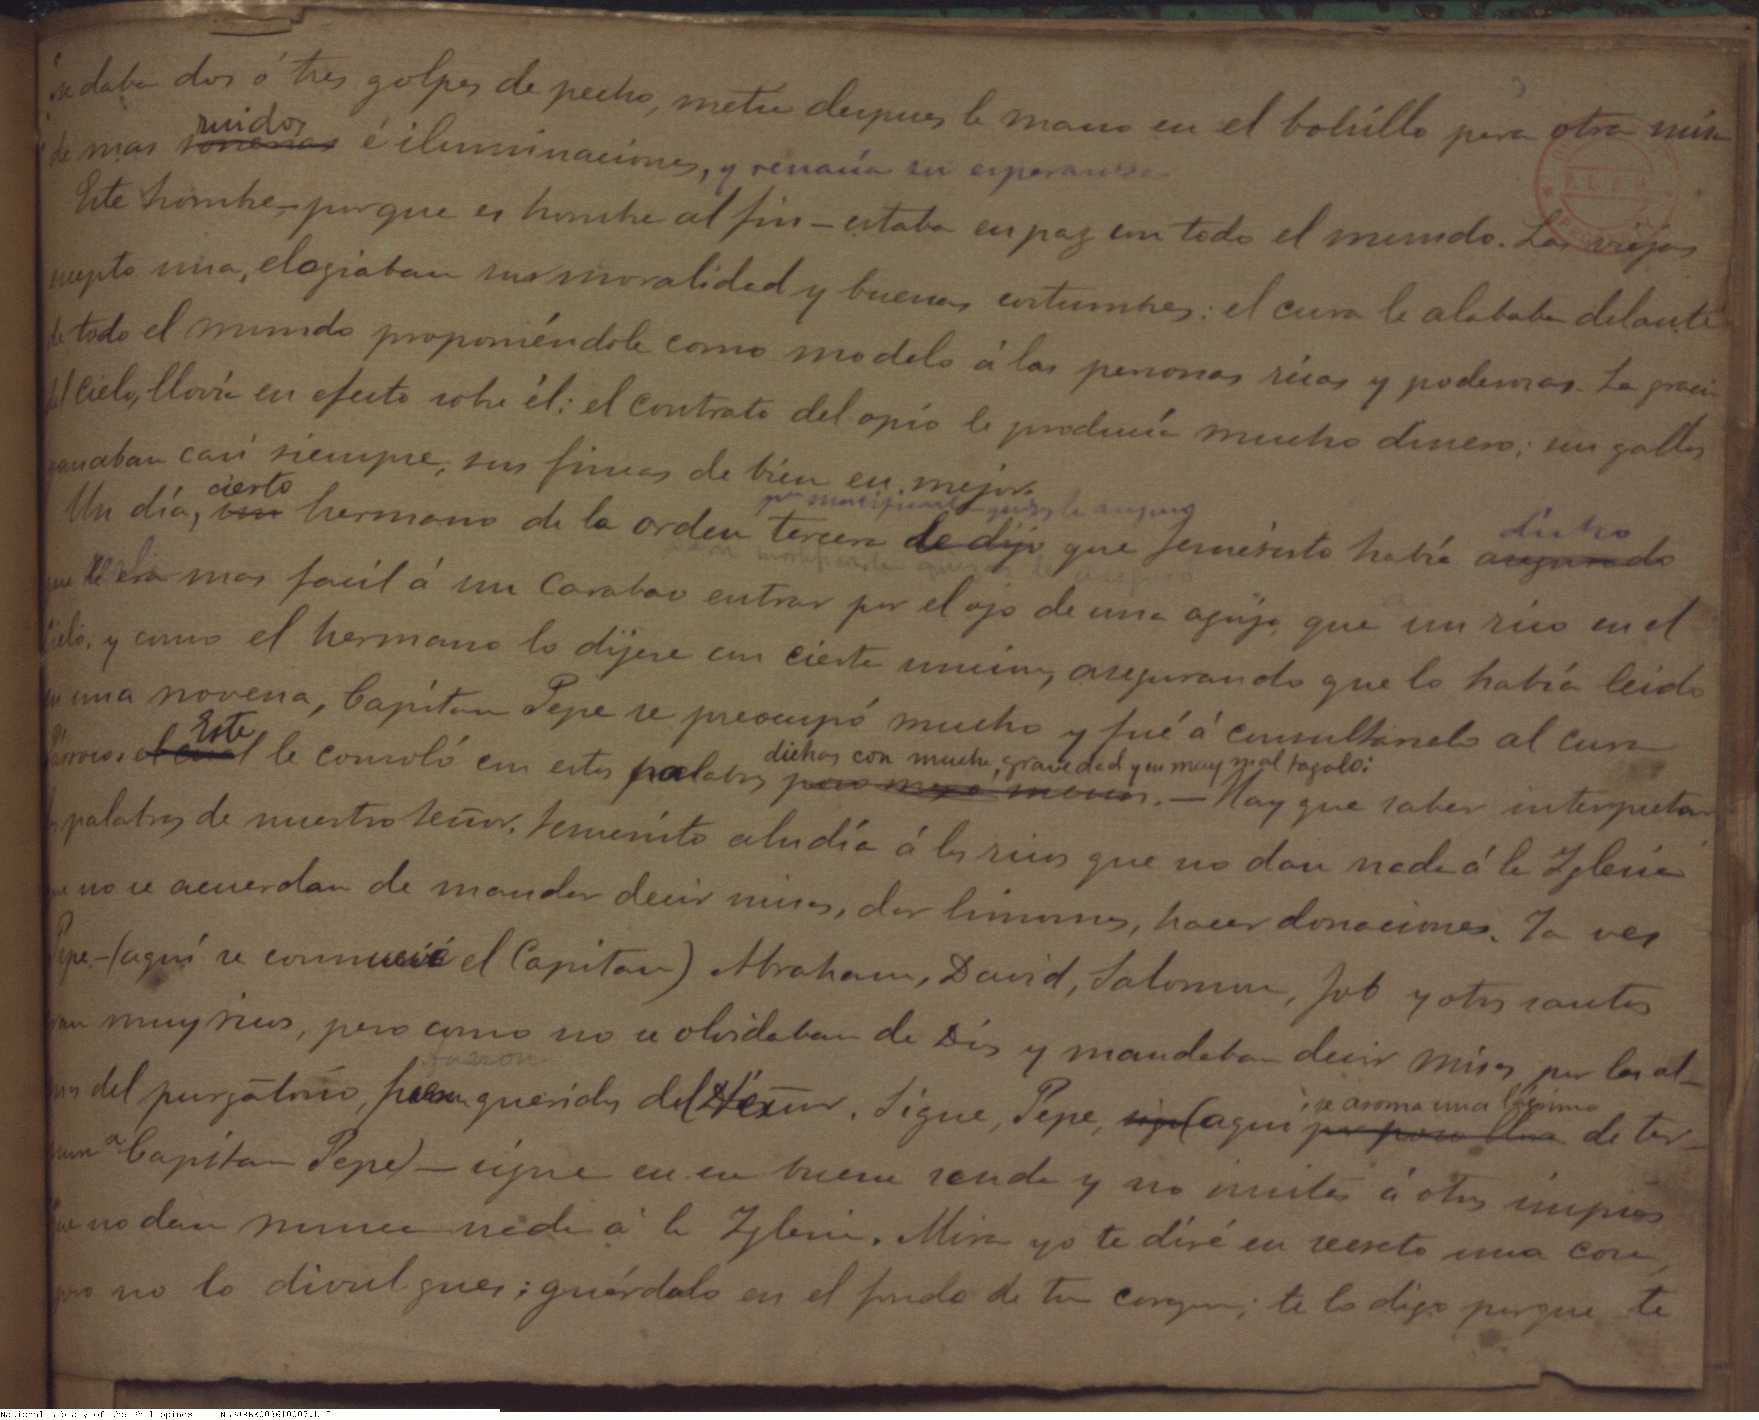 se daba dos ó tres golpes de pecho, metía despues la mano en el bolsillo para otra misa
de mas sonrisas ruidos é iluminaciones, y renacía su esperanza
Este hombre, porque es hombre al fin – estaba en paz con todo el mundo. Las viejas
excepto una, elogiaban su moralidad y buenas costumbres: el cura le alababa delante
de todo el mundo proponiéndole como modelo á las personas ricas y poderosas. La gracia
del cielo, llovía en efecto sobre él: el contrato del opio le producía mucho dinero; sus gallos
ganaban casi siempre, sus fincas de bien en mejor.
Un día, un cierto hermano de la orden tercera le dijo pª mortificarle quizás le aseguró que Jesucristo había asegurado dicho
que le era mas facil á un carabao entrar por el ojo de una aguja que un rico en el
Cielo; y como el hermano lo dijese con cierta uncion, asegurando que lo había leido
en una novena, Capitan Pepe se preocupó mucho y fué á consultárselo al cura
Párroco. el cual Este le consoló con estas palabras dichas con mucha gravedad y en muy mal tagalo: – Hay que saber interpretar
las palabras de nuestro Señor. Jesucristo aludía á los ricos que no dan nada á la Iglesia
que no se acuerdan de mandar decir misas, dar limosnas, hacer donaciones. Ya ves
Pepe – (aquí se conmueve el Capitan) Abraham, David, Salomon, Job y otros santos
eran muy ricos, pero como no se olvidaban de Dios y mandaban decir misas por las al-
mas del purgatorio, fueron queridos del Señor. Sigue, Pepe, sigue (aqui se asoma una lágrima de ter-
nura a Capitan Pepe) – sigue en su buena senda y no imites á otros impios
que no dan nunca nada á la Iglesia. Mira yo te diré en secreto una cosa,
pero no lo divulgues; guárdalo en el fondo de tu corazon; te lo digo porque te
National Library of the Philippines